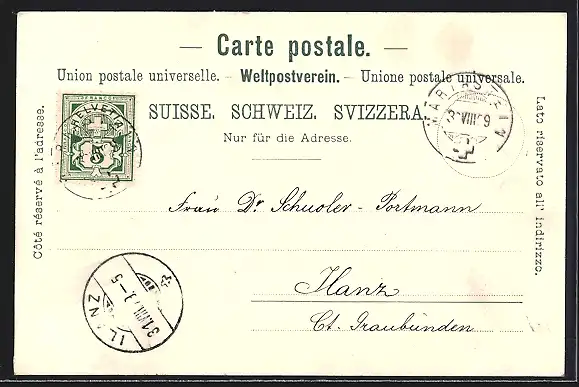 — Carte postale. —
Union postale universelle. – Weltpostverein. – Unione postale universale.
SUISSE. SCHWEIZ. SVIZZERA.
Nur für die Adresse.
Côté réservé à l'adresse.
Lato riservato all' indirizzo.
FRANCO
HELVETIA
5
MARIASTEIN
VIII
Frau Dr Schuoler - Portmann
Ilanz
Ct. Graubünden
ILANZ
31.VIII